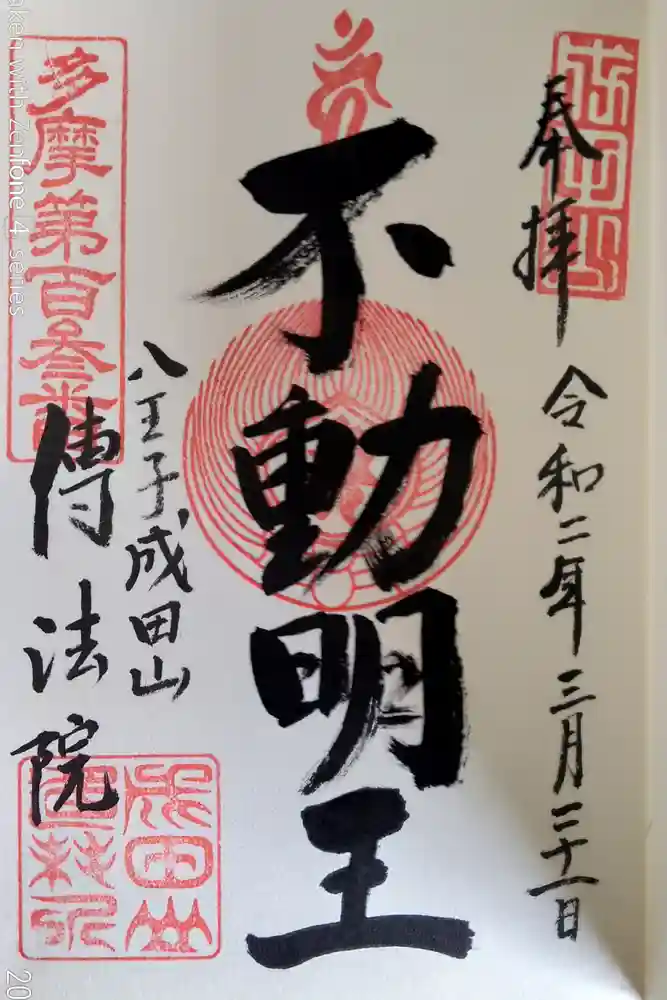 奉拝
令和二年三月三十一日
成田山
不動明王
八王子成田山
傳法院
多摩第百参番
成田山
Taken with Zenfone 4 series